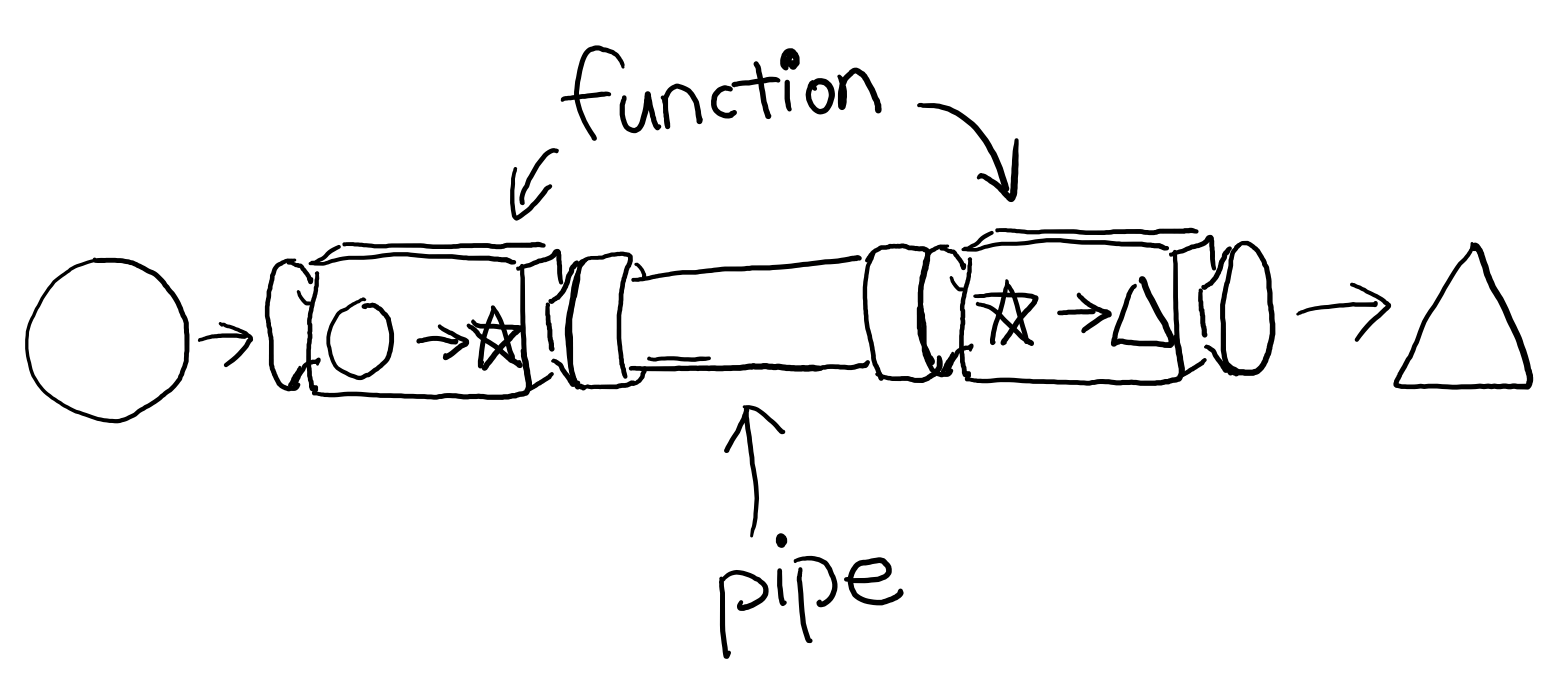 function
pipe